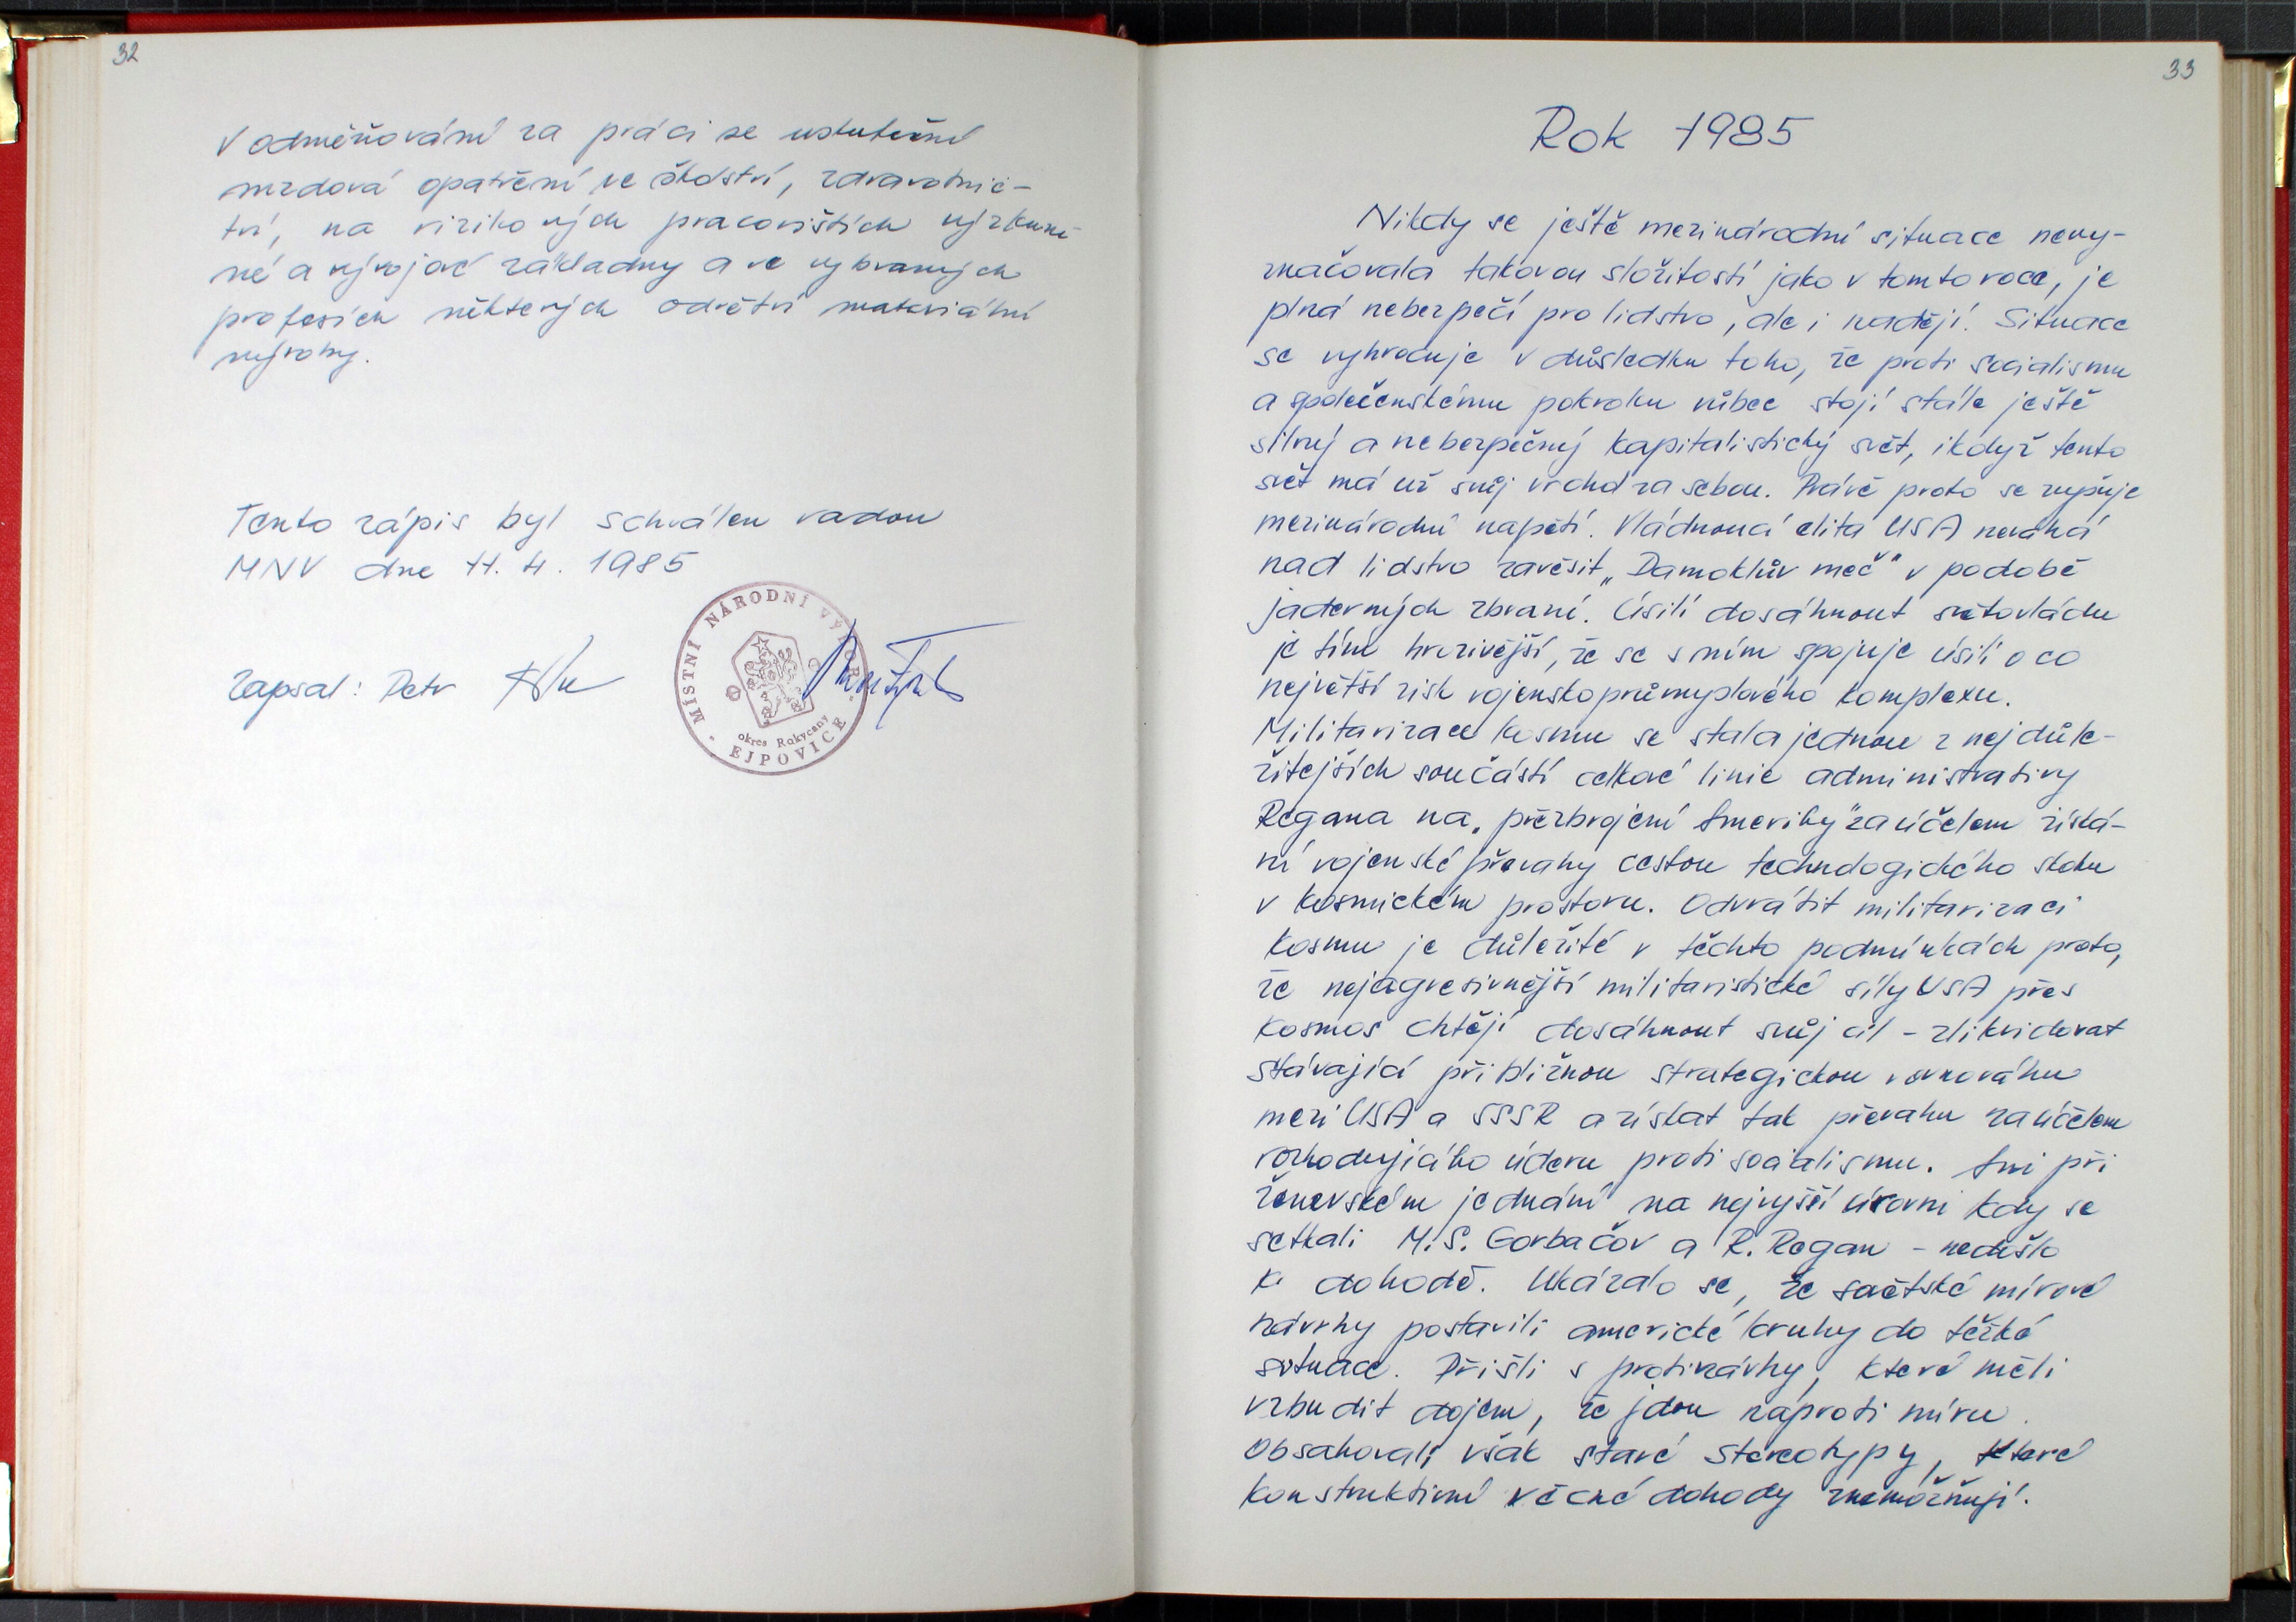 32
V odměňování za práci se uskuteční
mzdová opatření ve školství, zdravotnic-
tví, na rizikových pracovištích výzkum-
né a vývojové základny a ve vybraných
profesích některých odvětví materiální
výroby.
Tento zápis byl schválen radou
MNV dne 11. 4. 1985
zapsal: Petr
MÍSTNÍ NÁRODNÍ VÝBOR
okres Rokycany
EJPOVICE
33
Rok 1985
Nikdy se ještě mezinárodní situace nevy-
značovala takovou složitostí jako v tomto roce, je
plná nebezpečí pro lidstvo, ale i nadějí. Situace
se vyhrocuje v důsledku toho, že proti socialismu
a společenskému pokroku vůbec stojí stále ještě
silný a nebezpečný kapitalistický svět, ikdyž tento
svět má už svůj vrchol za sebou. Právě proto se zvyšuje
mezinárodní napětí. Vládnoucí elita USA neváhá
nad lidstvo zavěsit „Damoklův meč" v podobě
jaderných zbraní. Úsilí dosáhnout světovládu
je tím hrozivější, že se s ním spojuje úsilí o co
největší zisk vojenskoprůmyslového komplexu.
Militarizace kosmu se stala jednou z nejdůle-
žitejších součástí celkové linie administrativy
Regana na „přezbrojení Ameriky" za účelem získá-
ní vojenské převahy cestou technologického skoku
v kosmickém prostoru. Odvrátit militarizaci
kosmu je důležité v těchto podmínkách proto,
že nejagresivnější militaristické síly USA přes
kosmos chtějí dosáhnout svůj cíl - zlikvidovat
stávající přibližnou strategickou rovnováhu
mezi USA a SSSR a získat tak převahu za účelem
rozhodujícího úderu proti socialismu. Ani při
ženevském jednání na nejvyšší úrovni kdy se
setkali M. S. Gorbačov a R. Regan - nedošlo
k dohodě. Ukázalo se, že sovětské mírové
návrhy postavili americké kruhy do těžké
situace. Přišli s protinávrhy, které měli
vzbudit dojem, že jdou náproti míru.
Obsahovali však staré stereotypy, které
konstruktivní věcné dohody znemožňují.